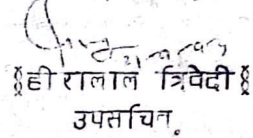 हीरालाल त्रिवेदी
उपसचिव